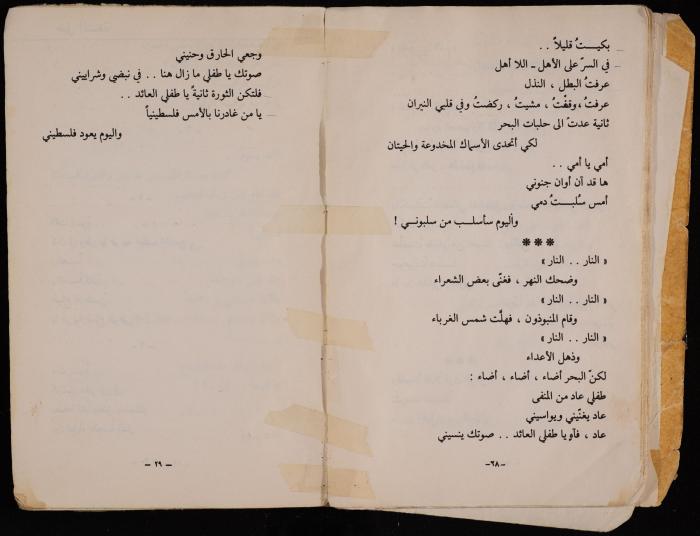 بكيــتُ قليلاً . .
في السرّ على الأهل ـ اللا أهل
عرفتُ البطل ، النذل
عرفتُ، وقفْتُ ، مشيتُ ، ركضتُ وفي قلبي النيران
ثانية عدتُ الى حلبات البحر
لكي أتحدى الأسماك المخدوعة والحيتان
أمي يا أمي . .
ها قد آن أوان جنوني
أمس سُلبــتُ دمي
واليوم سأسلــب من سلبونــي !
***
« النار . . النار »
وضحك النهر ، فغنّى بعض الشعراء
« النار . . النار »
وقام المنبوذون ، فهلّت شمس الغرباء
« النار . . النار »
وذهل الأعداء
لكنّ البحر أضاء ، أضاء ، أضاء :
طفلي عاد من المنفى
عاد يغنّيني ويواسيني
عاد ، فآهِ يا طفلي العائد . . صوتك ينسيني
-٦٨-
وجعي الحارق وحنيني
صوتك يا طفلي ما زال هنا . . في نبضي وشراييني
فلتكن الثورة ثانيةً يا طفلي العائد . .
يا من غادرنا بالأمس فلسطينياً
واليوم يعود فلسطيني
- ٢٩ -